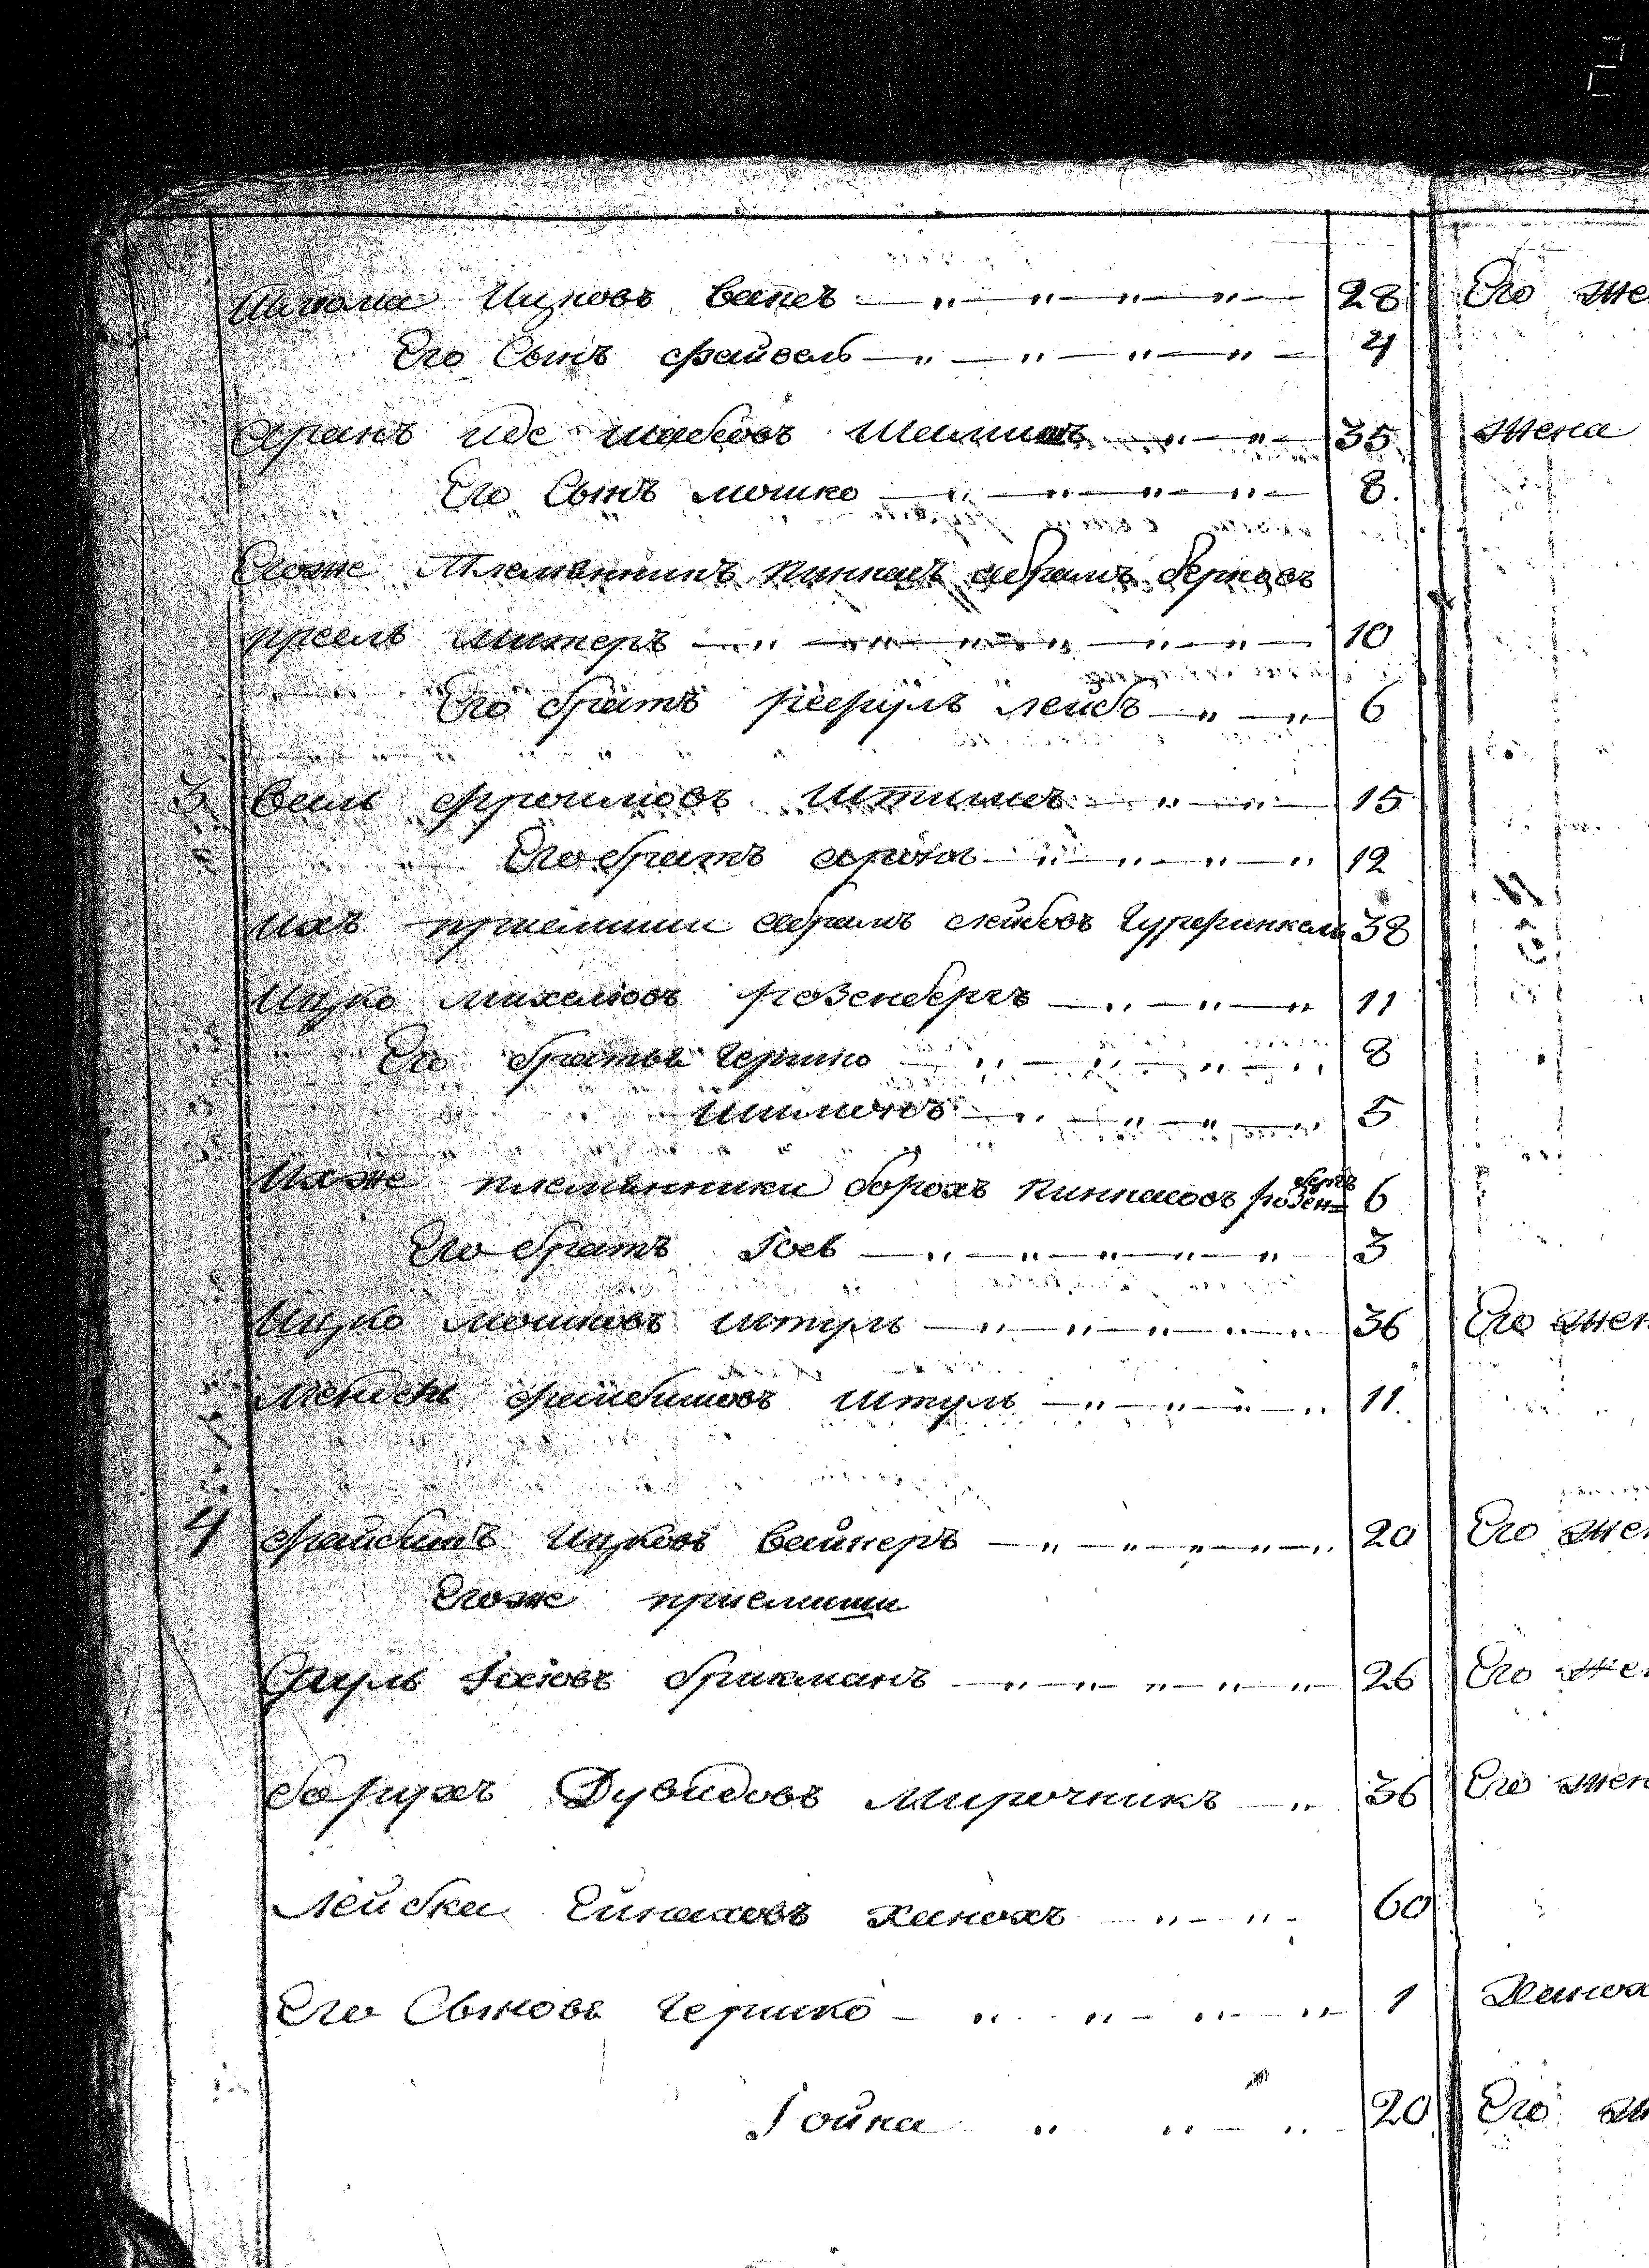 Шлиома Ицковъ Ваксъ 28 Его же
Его Сынъ файвель 4
Франъ иде шабсовъ 35 жена
Его Сынъ мошко 8
Егоже Племянникъ Пинкасъ абрамъ берковъ
митнеръ 10
Его братъ рефулъ лейбъ 6
3 Веиль фроимовъ 15
Его братъ аронъ 12
ихъ приемыши абрамъ лейбовъ Гурфинкель 38
Ицко михелювъ розенбергъ 11
Его братья гершко 8
шимонъ 5
Ихже племянники борохъ пинкасовъ розен= бергъ 6
Его братъ Іось 3
Ицко мошковъ штуль 36 Его жен
Мендель файбишовъ штуль 11
4 файбишъ Ицковъ Вайнеръ 20 Его жен
Егоже приемыши
Сруль Іосіовъ брикманъ 26 Его жен
борухъ Дувидовъ Мирочникъ 36 Его жен
Лейбка Ейнаховъ ханохъ 60
Его Сыновья гершко 1
Іойна 20 Его